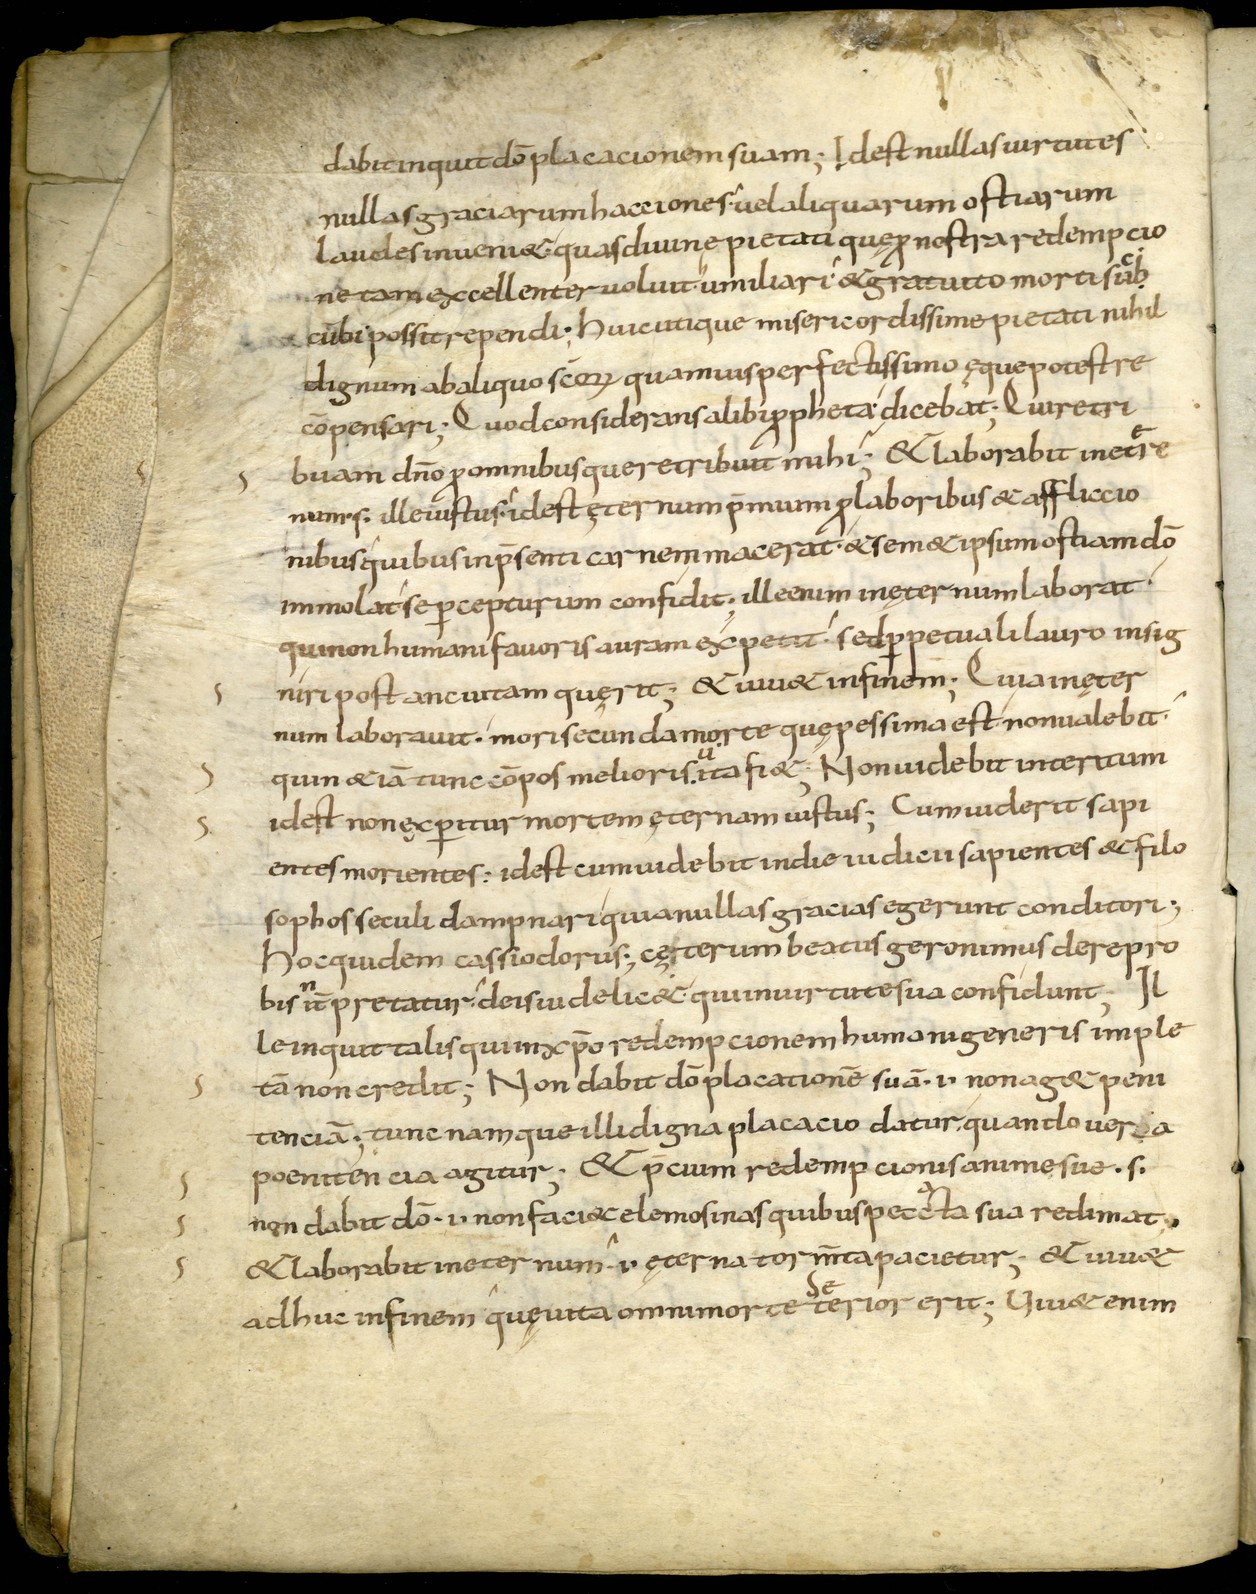 dabit inquit dō placacionem suam; Idest nullas uirtutes
nullas graciarum hacciones uel aliquarum ostiarum
laudes inueni& quas diuine pietati quę ꝓ nostra redempcio
ne tam excellenter uoluit umiliari & gratuito morti suc̄b
cūbi possit rependi; huic utique misericordissime pietati nihil
dignum ab aliquo sc̄oꝝ quamuis perfectissimo ęque potest re
cōpensari; Quod considerans alibi ꝓpheta dicebat; Qui retri
buam dn̄o ꝓ omnibus que retribuit mihi; & laborabit in et͛e
num .s. ille iustus idest ęternum p̄mium ꝓ laboribus & affliccio
nibus quibus in p̄senti carnem macerat & sem&ipsum ostiam dō
immolat se ꝑcepturum confidit; ille enim in ęternum laborat
qui non humani fauoris auram expetit sed ꝑpetuali lauro insig
niri post anc uitam quęrit; & uiu& in finem; Quia in ęter
num laborauit. mori secunda morte quę pessima est non ualebit
quin & iā tunc cōpos melioris uita fi&; Non uidebit interitum
idest non exꝑitur mortem ęternam iustus; Cum uiderit sapi
entes morientes: idest cum uidebit in die iudicii sapientes & filo
sophos seculi dampnari quia nullas gracias egerunt conditori;
hoc quidem cassiodorus; cęterum beatus geronimus de repro
bis int̄pretatur de is uidelic& qui in uirtute sua confidunt; Il
le inquit talis qui in xp̄o redempcionem humani generis imple
tā non credit; Non dabit dō placationē suā .i. non ag& peni
tenciā; tunc namque illi digna placacio datur quando uera
poenitencia agitur; & p̄cium redempcionis anime sue .s.
non dabit dō .i. non faci& elemosinas quibus peccata sua redimat.
& laborabit in eternum .i. ęterna torm̄ta pacietur; & uiu&
adhuc in finem quę uita omni morte seterior erit; Uiu& enim